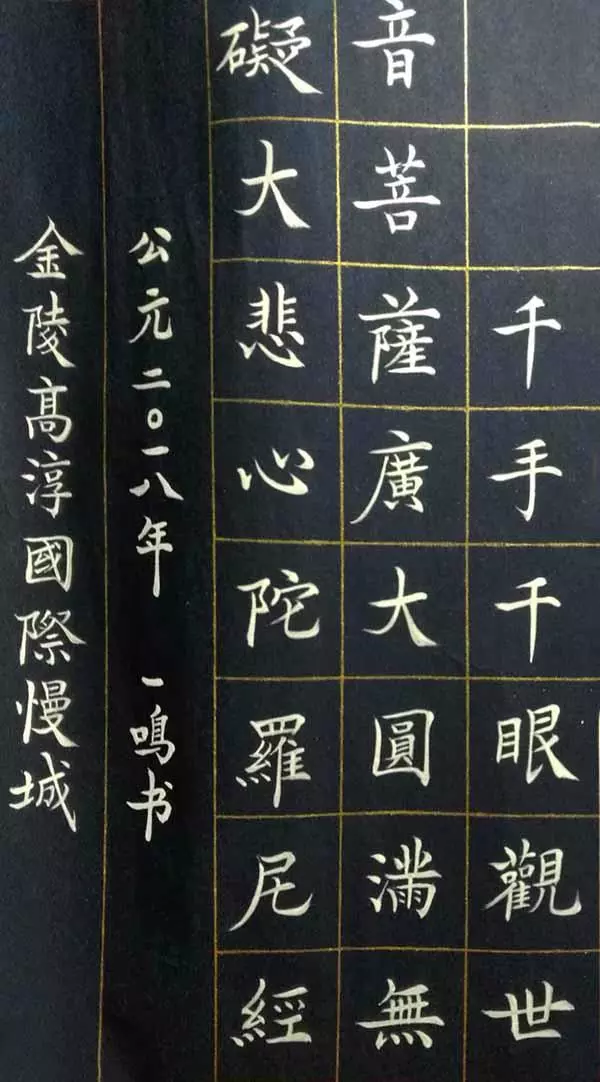 千手千眼觀世
音菩薩廣大圓滿無
礙大悲心陀羅尼經
公元二〇一八年 一鳴书
金陵高淳國際慢城